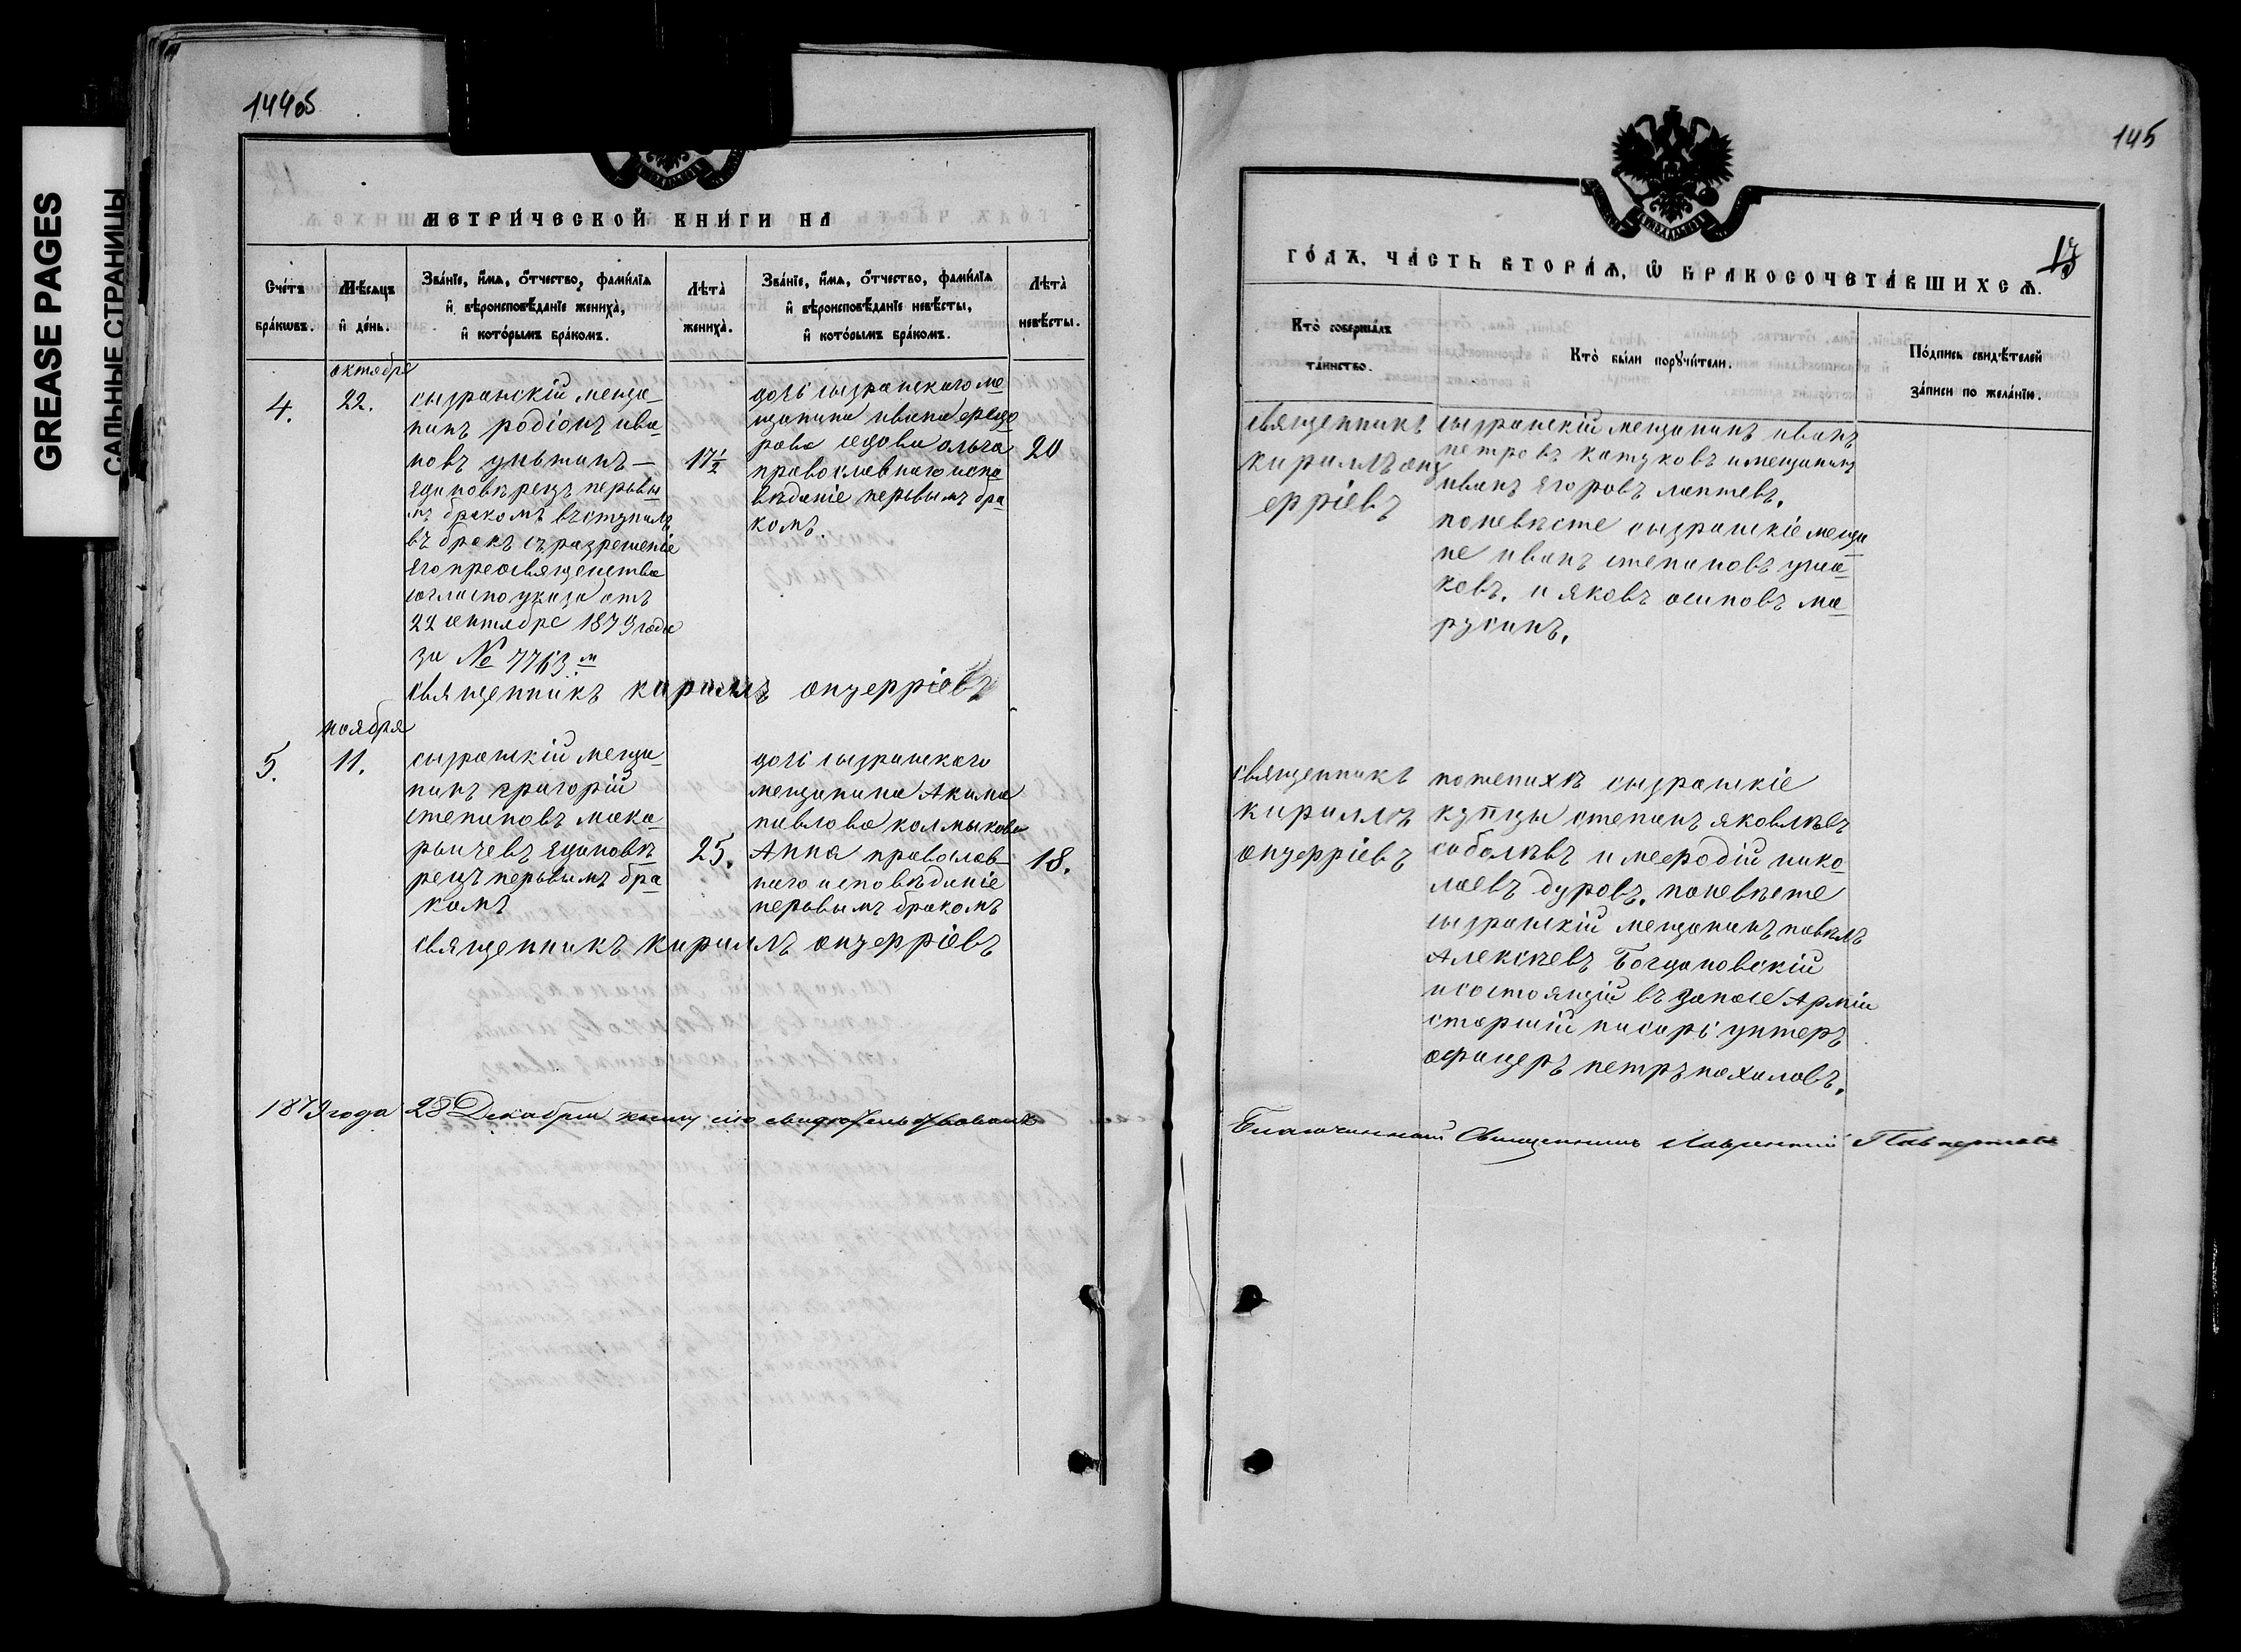 GREASE PAGES
САЛЬНЫЕ СТРАНИЦЫ
МЕТРИ́ЧЕСКОЙ КНИ́ГИ НА
Сче́тъ бра́кѡвъ.
Мѣ́сяцъ и҆ де́нь.
Зва́нїе, и҆́мѧ, ѻ҆́тчество, фами́лїѧ и҆ вѣроисповѣ́данїе жениха̀, и҆ кото́рымъ бра́комъ.
Лѣ́та̀ жениха̀.
Зва́нїе, и҆́мѧ, ѻ҆́тчество, фами́лїѧ и҆ вѣроисповѣ́данїе невѣ́сты, и҆ кото́рымъ бра́комъ.
Лѣ́та̀ невѣ́сты.
4.
октября
22.
сызранскій меща-
нинъ родіонъ ива-
новъ
единовѣрецъ первы-
мъ бракомъ вступилъ
въ бракъ съ разрешеніе
его преосвященства
согласно указа отъ
22 сентября 1879 года
за № 7763 м
17½
дочь сызранскаго ме-
щанина ивана федо-
рова седова ольга
православнаго испо-
вѣданіе первымъ бра-
комъ.
20
священникъ кириллъ онуерріевъ
5.
ноября
11.
сызранскій меща-
нинъ григорій
степановъ мака-
рычевъ единовѣ-
рецъ первымъ бра-
комъ
25.
дочь сызранскаго
мещанина Акима
павлова колмыкова
Анна православ-
наго исповѣданіе
первымъ бракомъ
18.
священникъ кириллъ онуерріевъ
1879 года 28 Декабря книгу сію свидѣтельствовалъ
145
ГО́ДЪ, ЧА́СТЬ ВТОРА́Ѧ, Ѡ҆ БРАКОСОЧЕТА́ВШИХСѦ.
Кто̀ соверша́лъ та́инство.
Кто̀ бы́ли порꙋчи́тели.
По́дпись свидѣ́телей за́писи по жела́нїю.
священникъ
кириллъ ону
ерріевъ
сызранскій мещанинъ иванъ
петровъ катуковъ и мещанинъ
иванъ егоровъ лаптевъ.
по невѣсте сызранскіе меща-
не иванъ степановъ уша-
ковъ. и яковъ осиповъ ма-
русинъ.
священникъ
кириллъ
онуерріевъ
по женихѣ сызранскіе
купцы степанъ яковлевъ
соболѣвъ и меѳродій нико-
лаевъ дуровъ. по невѣсте
сызранскій мещанинъ павелъ
Алексѣевъ Богдановскій
и состоящій въ запасе Арміи
старшій писарь унтеръ
офицеръ петръ пахаловъ.
Благочинный Священникъ